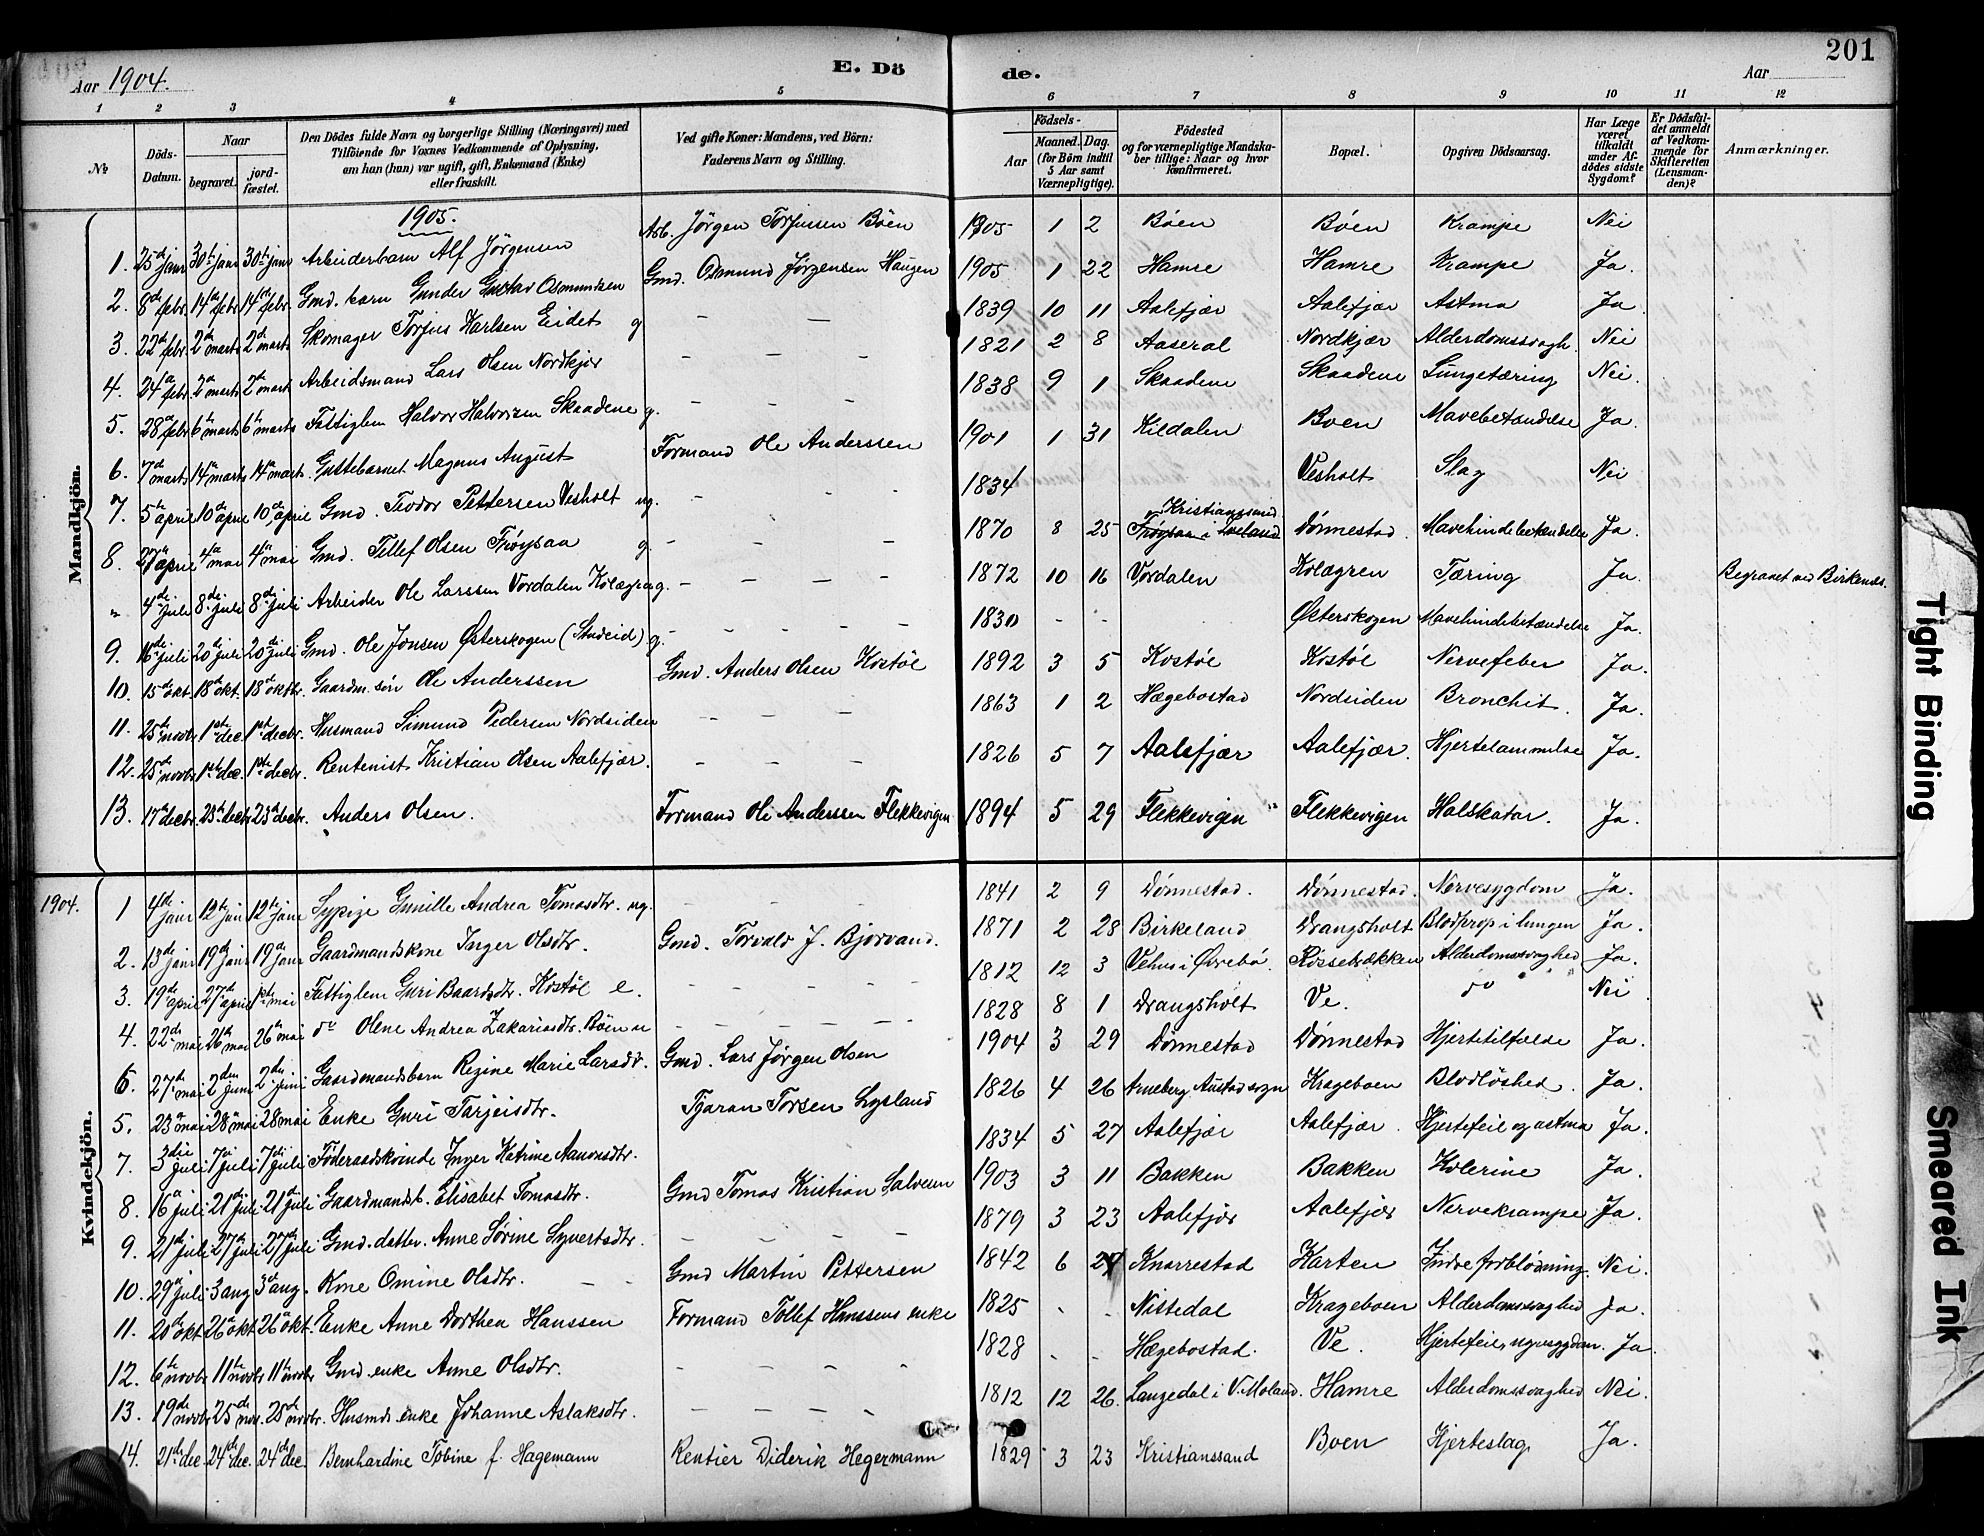 Aar 1904.
E. Dö
de.
Aar
201
1 2 3 4 5 6 7 8 9 10 11 12
№
Döds-Datum.
Naar
begravet.
jord-fæstet.
Den Dödes fulde Navn og borgerlige Stilling (Næringsvei) med
Tilföiende for Voxnes Vedkommende af Oplysning,
om han (hun) var ugift, gift, Enkemand (Enke)
eller fraskilt.
Ved gifte Koner: Mandens, ved Börn:
Faderens Navn og Stilling.
Födsels-
Aar
Maaned. Dag.
(for Börn indtil
5 Aar samt
Værnepligtige).
Födested
og for værnepligtige Mandska-
ber tillige: Naar og hvor
konfirmeret.
Bopæl.
Opgiven Dödsaarsag.
Har Læge
været
tilkaldt
under Af-
dödes sidste
Sygdom?
Er Dödsfal-
det anmeldt
af Vedkom-
mende for
Skifteretten
(Lensman-
den)?
Anmærkninger.
Mandkjön.
1905.
1. 25de janr 30te janr 30te janr Arbeiderbarn Alf Jörgensen Arb. Jörgen Torjussen Böen 1905 1 2 Böen Böen Krampe Nei
2. 8de febr 14de febr 14de febr. Gmd. barn Gunder Gustav Osmundsen Gmd. Osmund Jörgensen Haugen 1905 1 22 Hamre Hamre Krampe Ja.
3. 22de febr 2den marts 2den marts Skomager Torjus Karlsen Eidet g. — — 1839 10 11 Aalefjær Aalefjær Astma Ja.
4. 24de febr 2den marts 2den marts Arbeidsmand Lars Olsen Nordkjær — — — 1821 2 8 Aaseral Nordkjær Alderdomssvagh. Nei
5. 28de febr 6te marts 6te marts Fattiglem Halvor Halvorsen Skaadene g. — — — 1838 9 1 Skaadene Skaadene Lungetæring Nei.
6. 7de marts 14de marts 14de marts. Guttebarnet Magnus August Formand Ole Anderssen 1901 1 31 Kildalen Boen Mavebetændelse Ja.
7. 5te april 10de april 10de april Gmd. Teodor Pettersen Vesholt ug. — — — 1834 Vesholt Slag Nei
8. 27de april 4de mai 4de mai Gmd. Tellef Olsen Fröysaa g. — — — 1870 8 25 Kristianssand Fröysaa i Iveland Dönnestad. Mavehindebetændelse Ja.
" 4de juli 8de juli 8de juli Arbeider Ole Larssen Vordalen Kolægren g. — — — — 1872 10 16 Vordalen Kolægren Tæring Ja. Begravet ved Birkenes.
9. 16de juli 20de juli 20de juli Gmd. Ole Jonsen Østerskogen (Studeid) g. — — — — 1830 - - Østerskogen Mavehindebetændelse Ja.
10. 15de okt. 18de okt. 18de oktbr. Gaardm. sön Ole Anderssen Gmd. Anders Olsen Kostöl 1892 3 5 Kostöl Kostöl Nervefeber Ja.
11. 25de novbr 1ste dec. 1ste decbr. Husmand Simund Pedersen Nordsiden — — — 1863 1 2 Hægebostad Nordsiden Bronchit. Ja.
12. 25de novbr 1ste dec. 1ste decbr. Rentenist Kristian Olsen Aalefjær. — — — 1826 5 7 Aalefjær Aalefjær. Hjertelammelse Ja.
13. 17de decbr. 23de decbr 23de decbr. Anders Olsen. Formand Ole Anderssen Flekkevigen 1894 5 29 Flekkevigen Flekkevigen Halskatar. Ja.
Kvindekjön.
1904. 1 4de janr 12te jan 12te janr Sypige Gunille Andrea Tomasdtr. ug. — — — 1841 2 9 Dönnestad. Dönnestad. Nervesygdom Ja.
2. 13de janr 19de janr 19de janr Gaardmandskone Inger Olsdtr. Gmd. Torvald J. Bjorvand. 1871 2 28 Birkeland Drangsholt Blodprop i lungen Ja.
3. 19de april 27de april 1ste mai Fattiglem Guri Baardsdtr. Kostöl e. — — — — 1812 12 3 Vehus i Övrebö. Kossebrækken Alderdomssvaghed Ja.
4. 22de mai 26de mai 26de mai do Olene Andrea Zakariasdtr. Böen u — — — — — 1828 8 1 Drangsholt Ve. do Nei
6. 27de mai 2den juni 2den juni Gaardmandsbarn Regine Marie Larsdtr. Gmd. Lars Jörgen Olsen 1904 3 29 Dönnestad Dönnestad Hjertetilfælde Ja.
5. 23de mai 28de mai 28 mai Enke Guri Tarjeisdtr. Tjaran Torsen Lysland 1826 4 26 Arneberg Austad sogn Krageboen Blodlöshed. Ja.
7. 3die juli 7de juli 7de juli Föderaadskvinde Inger Katrine Aanonsdtr. 1834 5 27 Aalefjær Aalefjær. Hjertefeil og astma Ja.
8. 16de juli 21de juli 21de juli Gaardmandsb. Elisabet Tomasdtr. Gmd Tomas Kristian Salvesen 1903 3 11 Bakken Bakken Kolerine Ja.
9. 21de juli 27de juli 27de juli Gmd. datter. Anne Sörine Syvertsdtr. — — — — 1879 3 23 Aalefjær Aalefjær Nervekrampe Ja.
10. 29de juli 3de aug 3de aug. Kone Omine Olsdtr. — — Gmd Martin Pettersen 1842 6 24 Knarrestad Karten Indre forblödning. Nei.
11. 20de okt 26de okt. 26de okt. Enke Anne Dorthea Hanssen Formand Tollef Hanssens enke 1825 - - Nissedal Krageboen Alderdomssvaghed Ja.
12. 6te novbr 11te novbr 11te novbr. Gmd. enke Anne Olsdtr. — — — — 1828 - - Hægebostad. Ve. Hjertefeil, nyresygdom. Ja.
13. 19de novbr 25de nov. 25de novbr. Husmds enke Johanne Aslaksdtr. — — — — 1812 12 26. Langedal i V. Moland. Hamre Alderdomssvaghed Nei.
14. 21de dec 24de dec. 24de dec. Bernhardine Tobine f. Hagemann Rentier Diderik Hegermann 1829 3 23 Kristianssand Boen Hjerteslag Ja.
Tight Binding
Smeared Ink